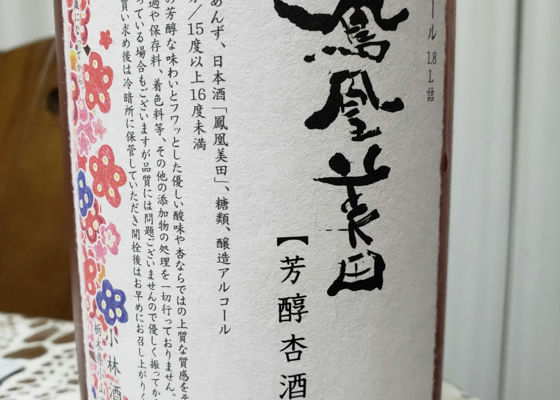 ール 1.8L詰
鳳凰美田
【芳醇杏酒
あんず、日本酒「鳳凰美田」、糖類、醸造アルコール
分/15度以上16度未満
の芳醇な味わいとフワッとした優しい酸味や杏ならではの上質な質感をそ
過や保存料、着色料等、その他の添加物の処理を一切行っておりません。
っている場合もございますが品質には問題ございませんので優しく振ってか
買い求め後は冷暗所に保管していただき開栓後はお早めにお召し上がりく
小林酒
栃木県小山